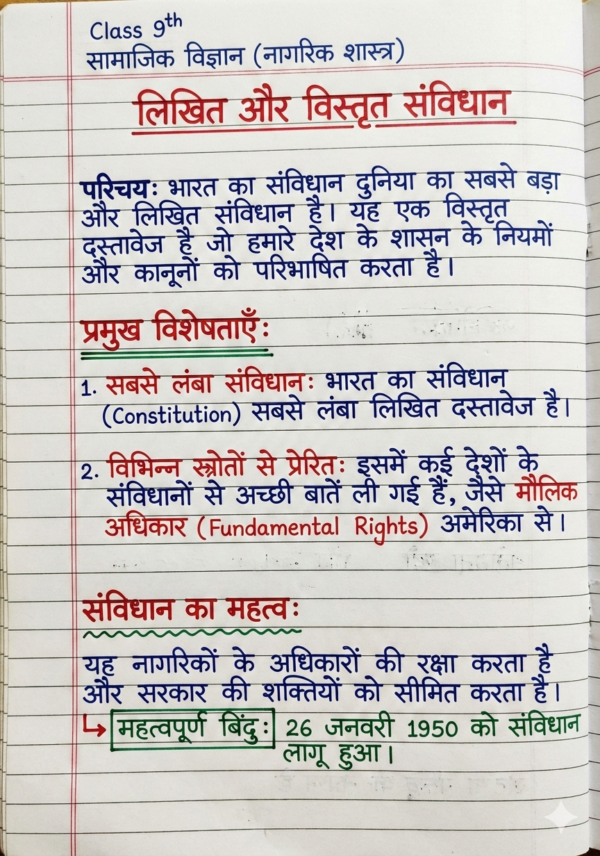 Class 9th
सामाजिक विज्ञान (नागरिक शास्त्र)
लिखित और विस्तृत संविधान
परिचय: भारत का संविधान दुनिया का सबसे बड़ा
और लिखित संविधान है। यह एक विस्तृत
दस्तावेज है जो हमारे देश के शासन के नियमों
और कानूनों को परिभाषित करता है।
प्रमुख विशेषताएँ:
1. सबसे लंबा संविधान: भारत का संविधान
(Constitution) सबसे लंबा लिखित दस्तावेज है।
2. विभिन्न स्त्रोतों से प्रेरित: इसमें कई देशों के
संविधानों से अच्छी बातें ली गई हैं, जैसे मौलिक
अधिकार (Fundamental Rights) अमेरिका से।
संविधान का महत्व:
यह नागरिकों के अधिकारों की रक्षा करता है
और सरकार की शक्तियों को सीमित करता है।
↳ महत्वपूर्ण बिंदु: 26 जनवरी 1950 को संविधान
लागू हुआ।